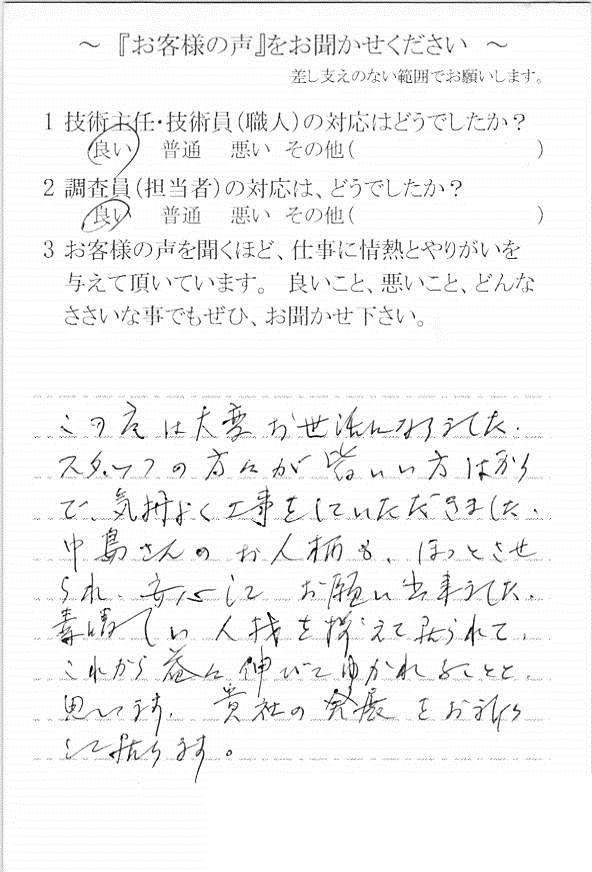 ～『お客様の声』をお聞かせください ～
差し支えのない範囲でお願いします。
1 技術主任・技術員(職人)の対応はどうでしたか?
良い 普通 悪い その他( )
2 調査員(担当者)の対応は、どうでしたか?
良い 普通 悪い その他( )
3 お客様の声を聞くほど、仕事に情熱とやりがいを
与えて頂いています。 良いこと、悪いこと、どんな
ささいな事でもぜひ、お聞かせ下さい。
この度は大変お世話になりました。
スタッフの方々が皆いい方ばかり
で、気持よく工事をしていただきました。
中島さんのお人柄も、ほっとさせ
られ、安心して お願い出来ました。
素晴しい人材を揃えて居られて、
これから益々伸びてゆかれることと
思います。 貴社の発展をお祈り
して居ります。